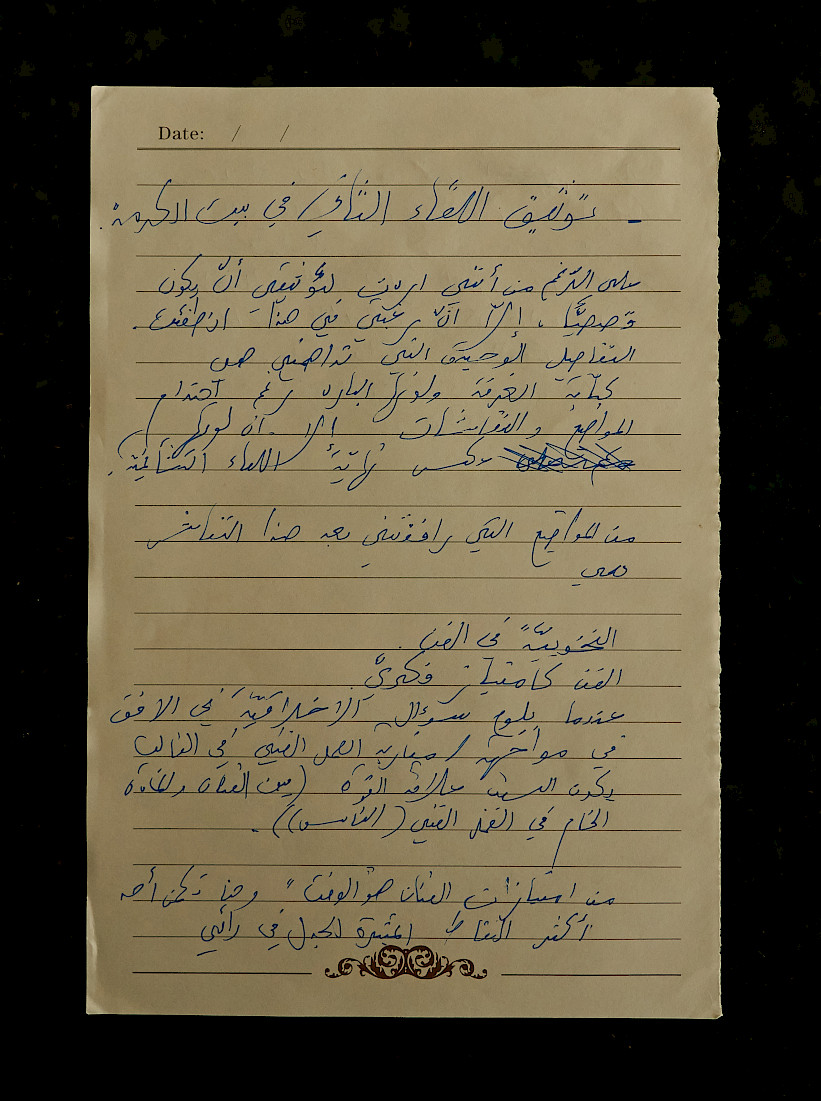 Date: / /
- توثيق اللقاء الثاني في بيت الكرمة.
على الرّغم من أنّني اردت لتوثيقي أن يكون
قصصيًّا، إلّا أنّ رغبتي في هذا انطفئت.
التفاصيل الوحيدة التي تداهمني هي
كآبة الغرفة ولونها البارد رغم احتدام
المواضيع والنقاشات إلا أنه لونها
عكس نهايّة اللقاء التشائميّة.
من المواضيع التي رافقتني بعد هذا النقاش
هي
النخبويّة في الفن.
الفن كامتياز فكريّ.
عندما يلوح سؤال الأخلاقيّة في الافق
في مواجهة / مقاربة العمل الفنّي في الغالب
يكون السبب علاقة القوّة (بين الفنّان والمادة
الخام في العمل الفني (الناس)).
من امتيازات الفنان هو الوقت" وهنا تكمن أحد
أكثر النقاط المثيرة للجدل في رأيي